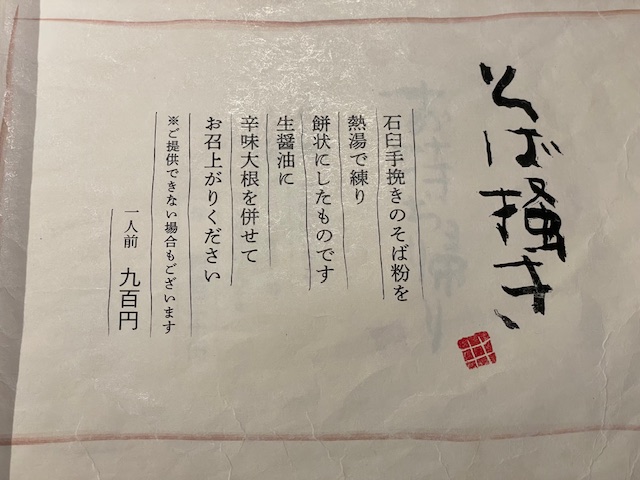 そば掻き
石臼手挽きのそば粉を
熱湯で練り
餅状にしたものです
生醤油に
辛味大根を併せて
お召上がりください
※ご提供できない場合もございます
一人前 九百円